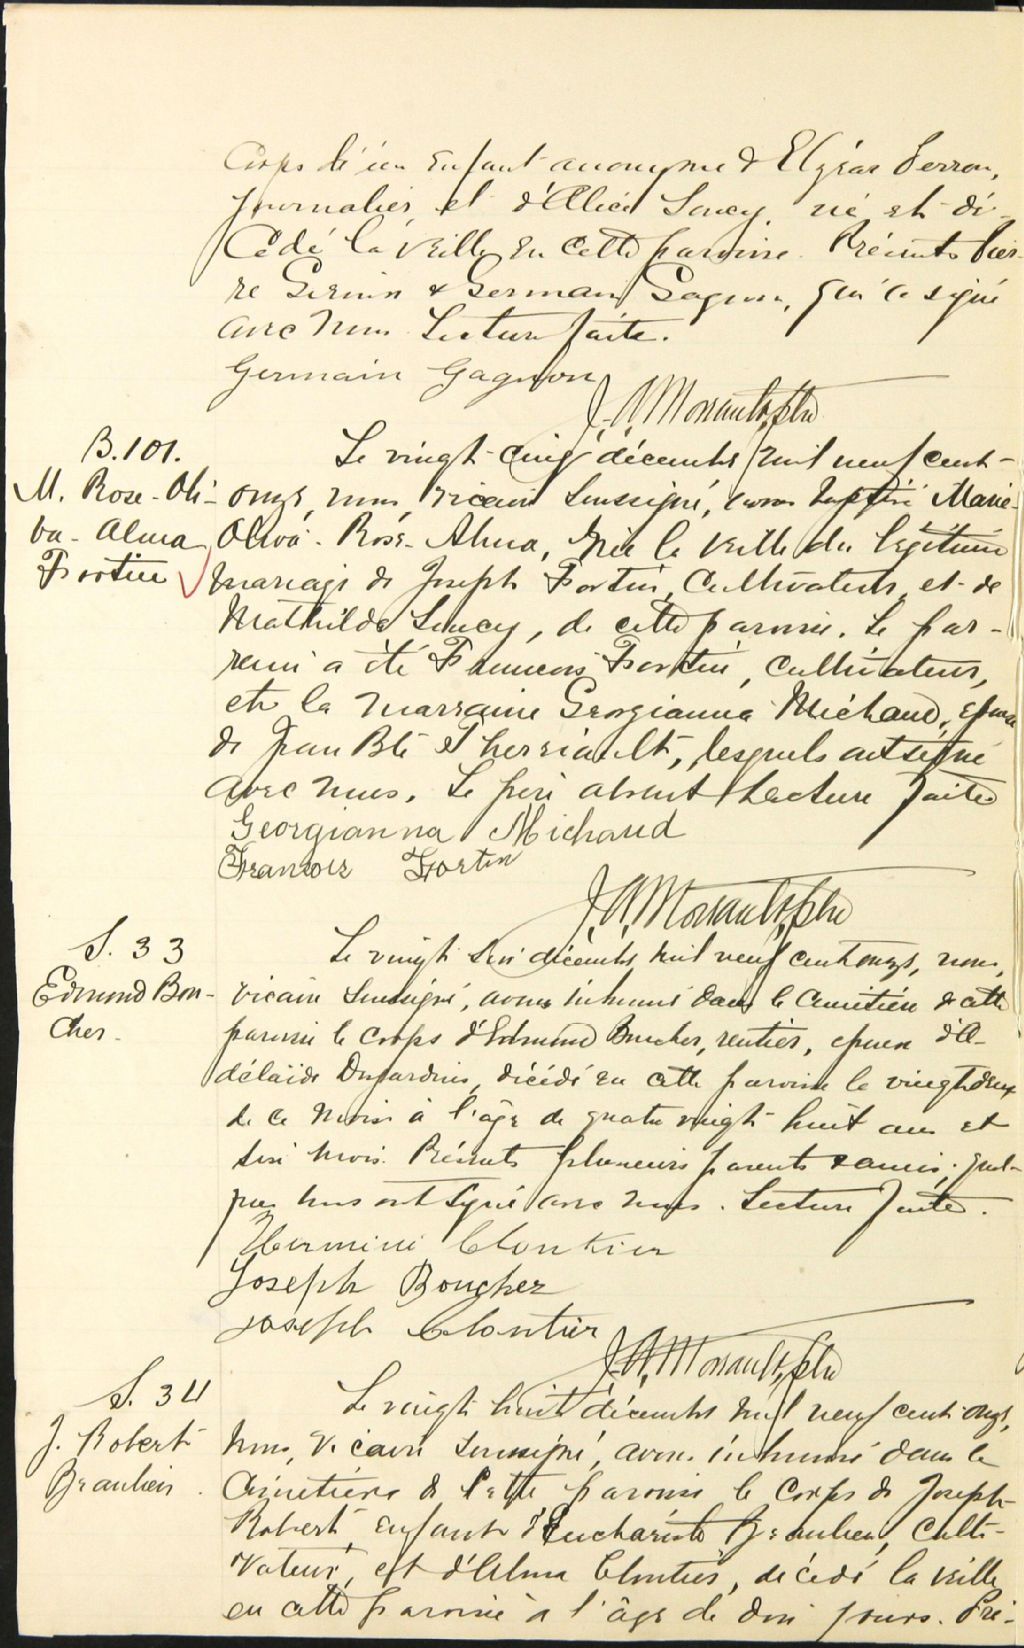 Corps d'un Enfant anonyme d'Elzéar Perron,
journalier, et d'Alice Soucy, né et dé-
cédé la veille en cette paroisse. Présents Pier-
re & Germain Gagnon, qui a signé
avec nous. Lecture faite.
Germain Gagnon
ptre
B.101.
M. Rose-Oli-
va-Alma
Fortin
Le vingt-cinq décembre mil neuf cent-
onze, nous, vicaire soussigné, avons baptisé Marie-
Oliva-Rose-Alma, née la veille du légitime
mariage de Joseph Fortin, Cultivateur, et de
Mathilde Soucy, de cette paroisse. Le par-
rain a été François Fortin, cultivateur,
et la marraine Georgianna Michaud, épouse
de Jean Bte Therriault, lesquels ont signé
avec nous. Le père absent. Lecture faite
Georgianna Michaud
Francois Fortin
ptre
S. 33
Edmond Bou-
cher.
Le vingt six décembre mil neuf cent onze, nous,
vicaire soussigné, avons inhumé dans le Cimetière de cette
paroisse le corps d'Edmond Boucher, rentier, époux d'A-
délaïde Dujardins, décédé en cette paroisse le vingt deux
de ce mois à l'âge de quatre vingt huit ans et
six mois. Présents plusieurs parents & amis, quel-
ques uns ont signé avec nous. Lecture faite.
Clontier
Joseph Boucher
Joseph Cloutier
ptre
S. 34
J. Robert
Beaulieu.
Le vingt huit décembre mil neuf cent onze,
nous, Vicaire soussigné, avons inhumé dans le
Cimetière de cette paroisse le corps de Joseph-
Robert, enfant d'Euchariste Beaulieu, Culti-
vateur, et d'Alma Cloutier, décédé la veille
en cette paroisse à l'âge de jours. Pré-